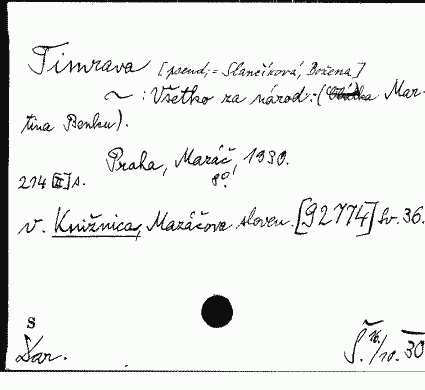 Timrava [pseud. = Slančíková, Božena]
~ : Všetko za národ. (Obálka Mar-
tina Benku).
Praha, Mazáč, 1930.
214 [II] s. 8°.
v. Knižnica, Mazáčova sloven. [92774] Sv. 36.
S
Dar. Š. 16./10. 30